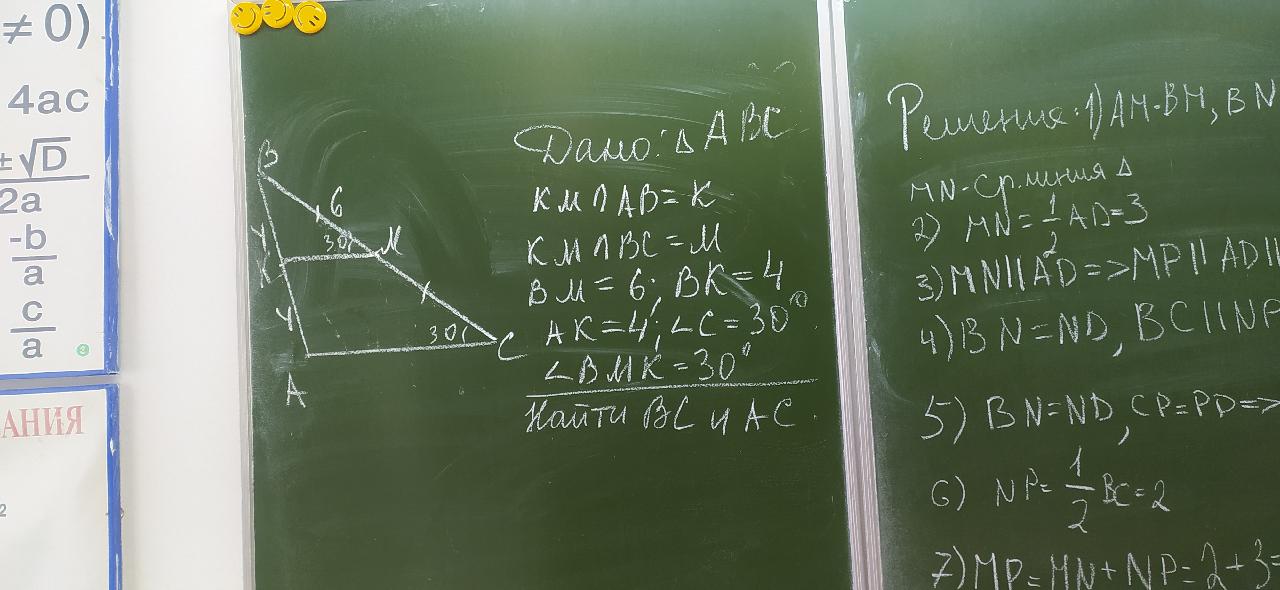 ≠ 0)
4ac
±√D
2a
-b
a
c
a
АНИЯ
2
B
6
30°
M
4
K
4
30°
C
A
Дано: △ ABC
KM ∩ AB = K
KM ∩ BC = M
BM = 6; BK = 4
AK = 4; ∠C = 30°
∠BMK = 30°
Найти BC и AC
Решение: 1) AM=BM, BN
MN - ср. линия △
2) MN = 1/2 AD = 3
3) MN || AD => MP || AD ||
4) BN = ND, BC || NP
5) BN = ND, CP = PD =>
6) NP = 1/2 BC = 2
7) MP = MN + NP = 2 + 3 =